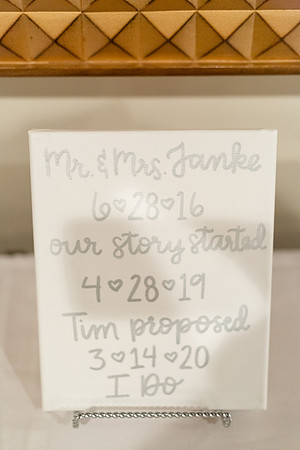 Mr. & Mrs. Janke
6♡28♡16
our story started
4♡28♡19
Tim proposed
3♡14♡20
I Do